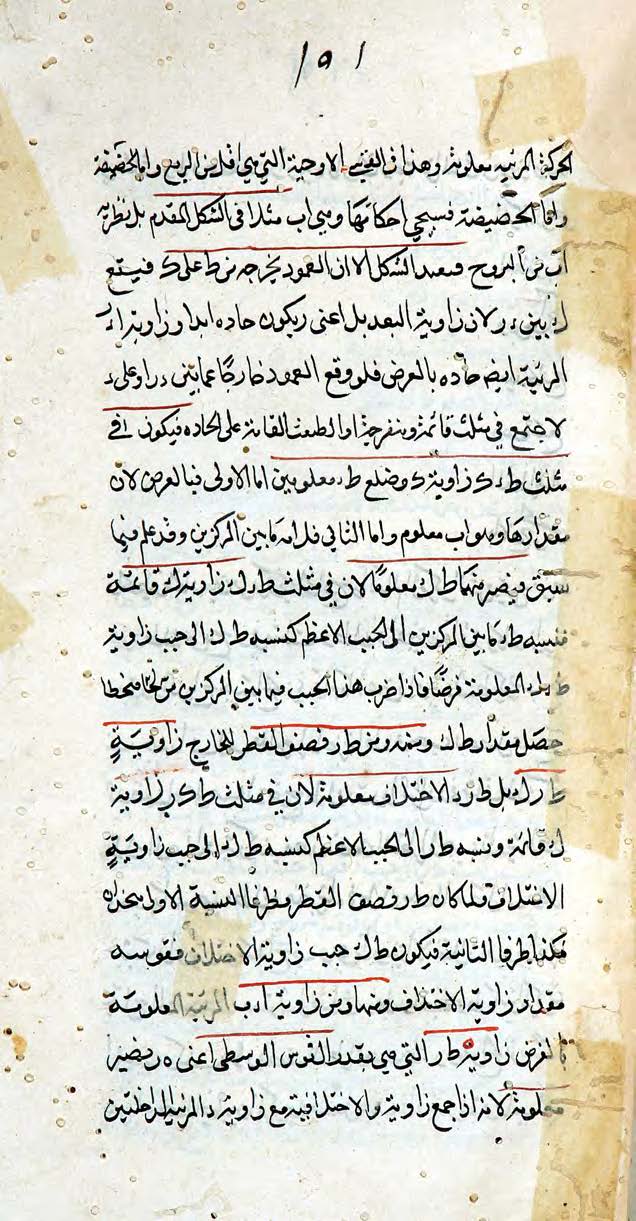 ١٥١
الحركة المرئيه معلومة وهذا فى القسى الاوجية التى هى اقل من الربع واما الحضيضة
واما الحضيضة فسيجى احكامها وهى اب مثلا فى الشكل المقدم بل نظيره
اب من البروج فنعيد الشكل الا ان العمود يخرجه من ط على ك فيقع
ك بين ء ر لان زاوية البعد بل اعنى ريكون حاده ابدا وزاوية اء ر
المرئية ايضا حاده بالفرض فلو وقع العمود خارجا عما بين در او على ء
لاجتمع فى مثلث قائمة ومنفرجة او انطبقت القائمة على الحاده فيكون فى
مثلث ط ء ك زاوية ك وضلع ط ء معلومين اما الاولى فبالفرض لان
مقدارها وهو اب معلوم واما الثانى فلانه ما بين المركزين وقد علم فيما
سبق فيصر منهما ط ك معلوما لان فى مثلث ط ء ك زاوية ك قائمة
فنسبه ط ء ما بين المركزين الى الجيب الاعظم كنسبه ط ك الى جيب زاوية
ط ء ك المعلومة فرضا فاذا ضرب هذا الجيب فيما بين المركزين من منحطا
حصل مقدار ط ك ومنه ومن ط ر نصف القطر الخارج زاوية
ط ر ك بل ط ر د الاختلاف معلومة لان فى مثلث ط ك ر زاوية
ك قائمة ونسبه ط ر الى الجيب الاعظم كنسبه ط ك الى جيب زاوية
الاختلاف فلما كان ط ر نصف القطر وطرفا النسبة الاولى متحدان
فكذا طرفا الثانية فيكون ط ك جيب زاوية الاختلاف فقوسه
مقدار زاوية الاختلاف ومنها ومن زاوية ادب المرئية المعلومة
بالفرض زاوية ط ر التى هى بقدر القوس الوسطى اعنى ه ر فيصير
معلومة لانه اذا جمع زاوية ر الاختلافية مع زاوية د المرئية الداخلتين